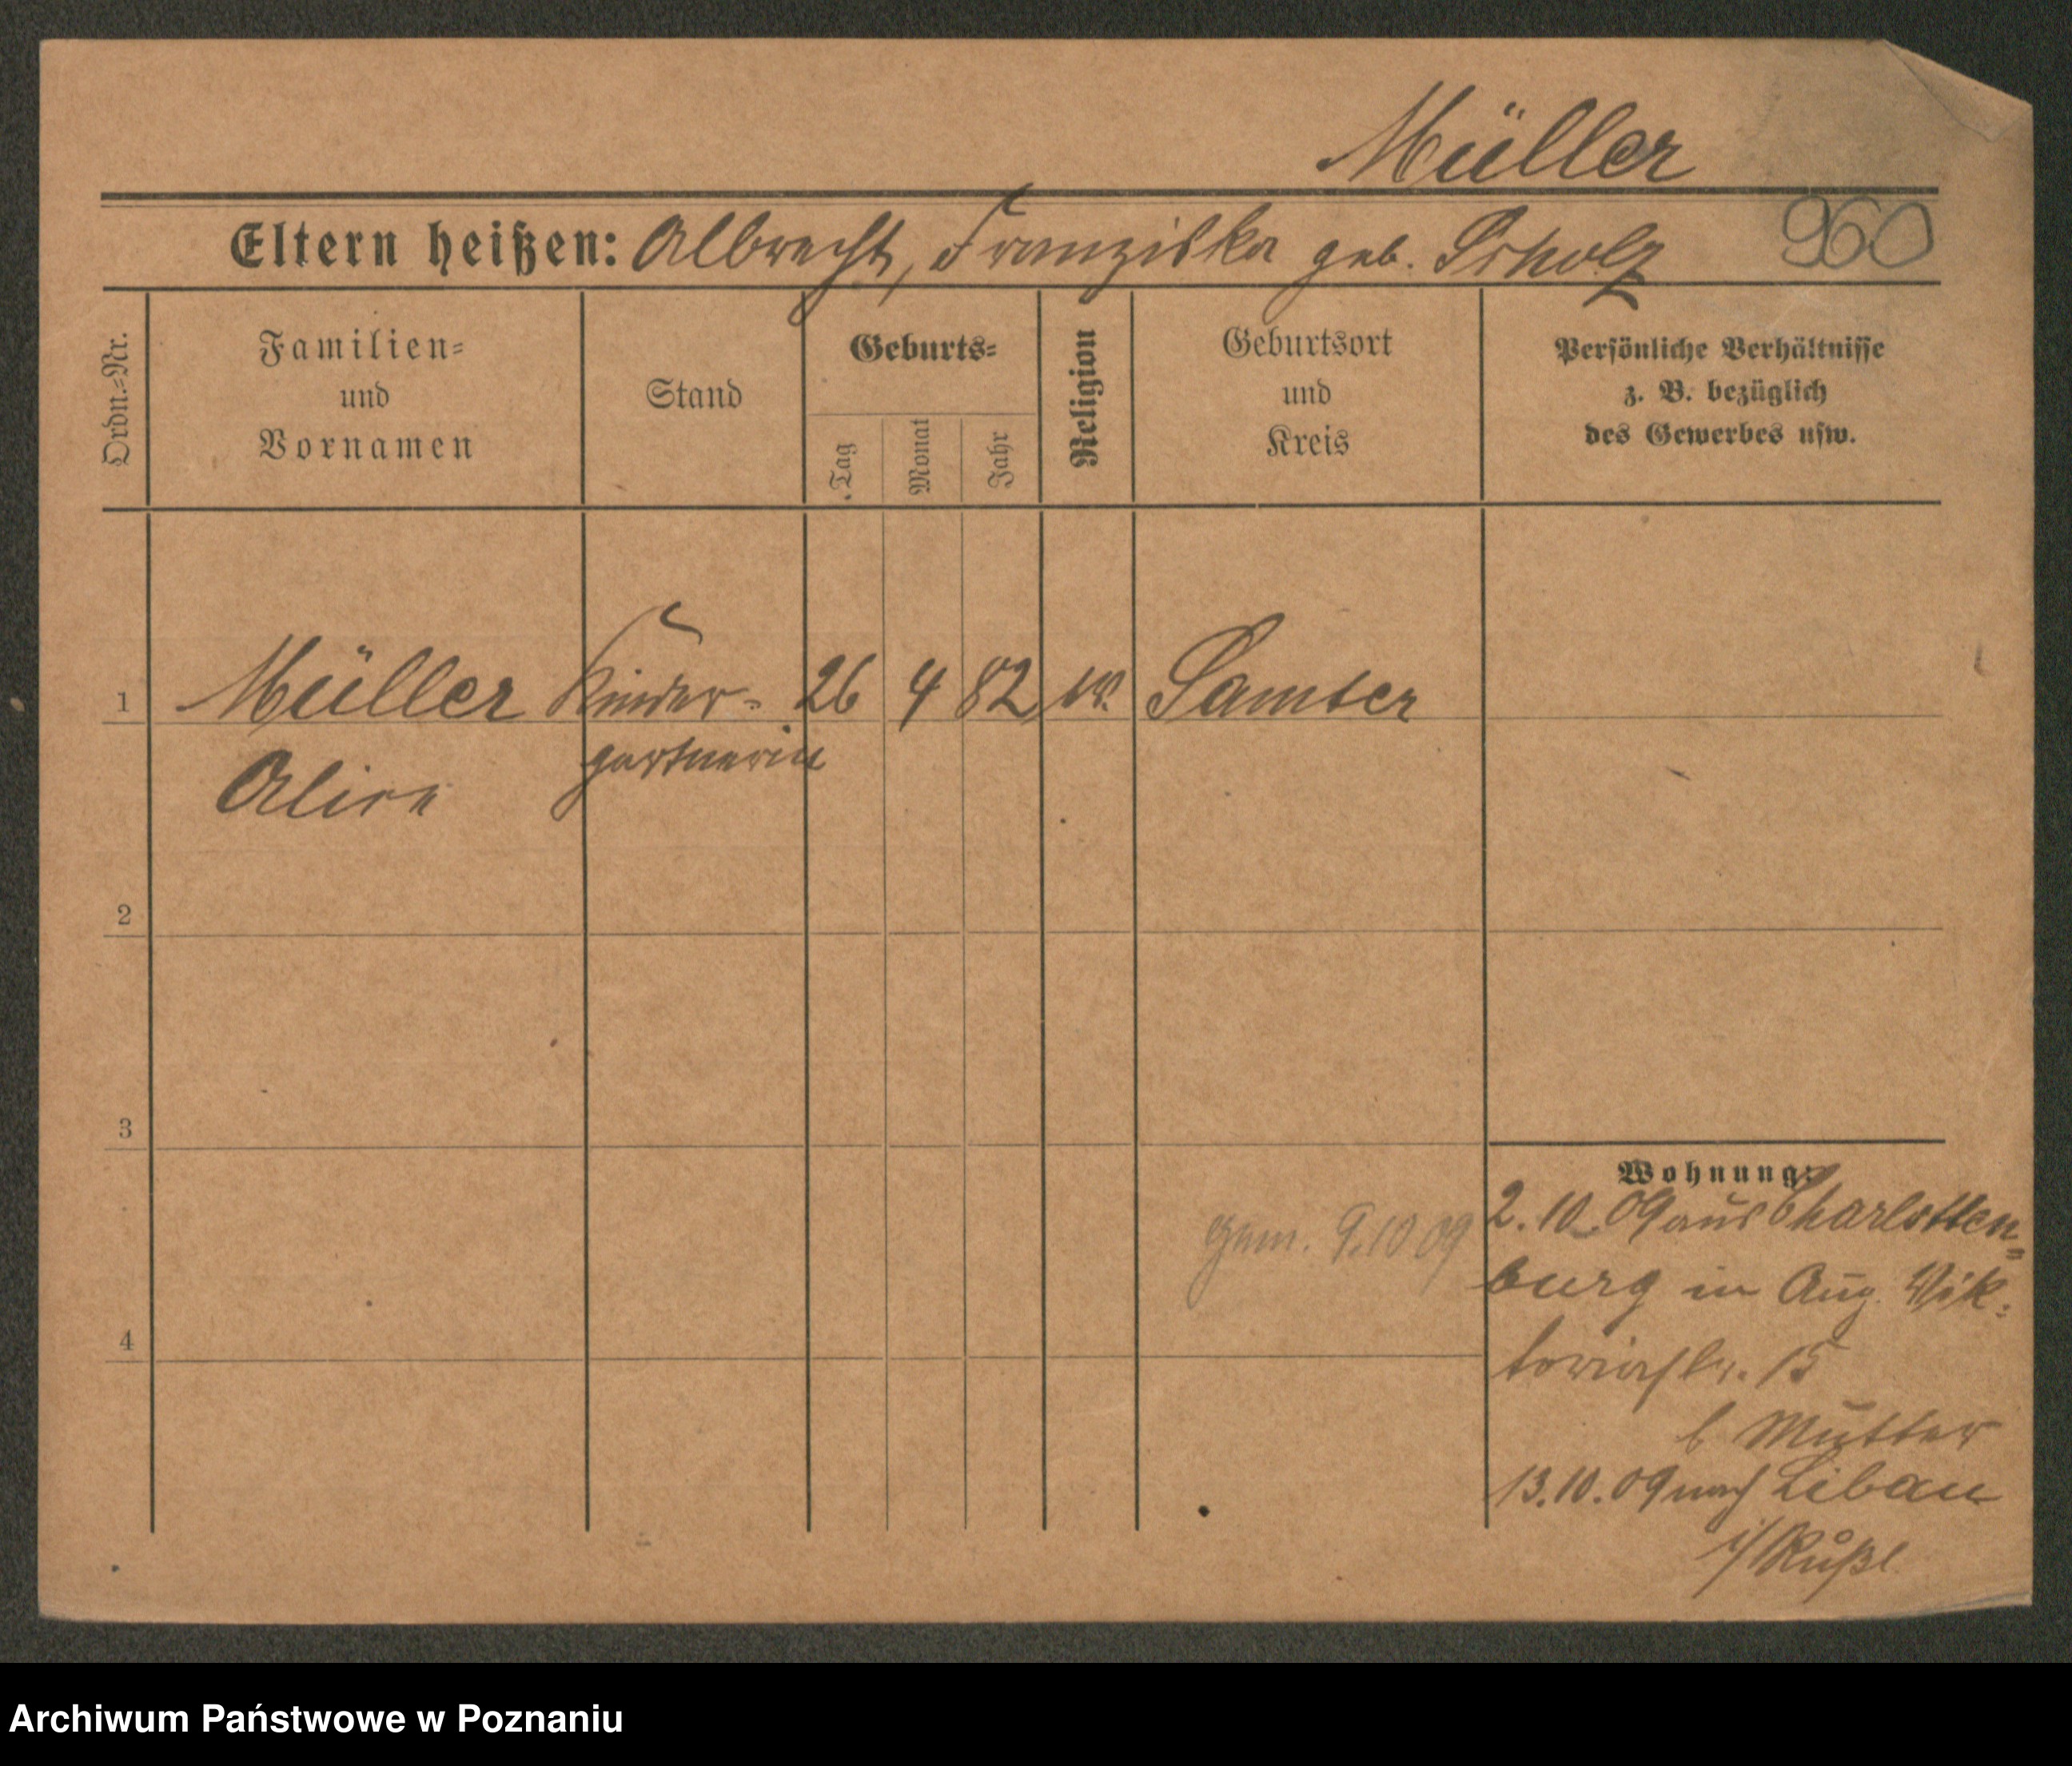 Müller
Eltern heißen: Albrecht, Franziska geb. Scholz 960
Ordn.-Nr.
Familien-
und
Vornamen
Stand
Geburts-
Tag
Monat
Jahr
Religion
Geburtsort
und
Kreis
Persönliche Verhältnisse
z. B. bezüglich
des Gewerbes usw.
1 Müller Kinder- 26 4 82 Samter
Alice gärtnerin
2
3
Wohnung:
2.10.09 aus Charlotten-
gem. 9.10 09
burg in Aug. Vik-
4
toriastr. 15
b Mutter
13.10.09 nach Libau
i/Rußl.
Archiwum Państwowe w Poznaniu